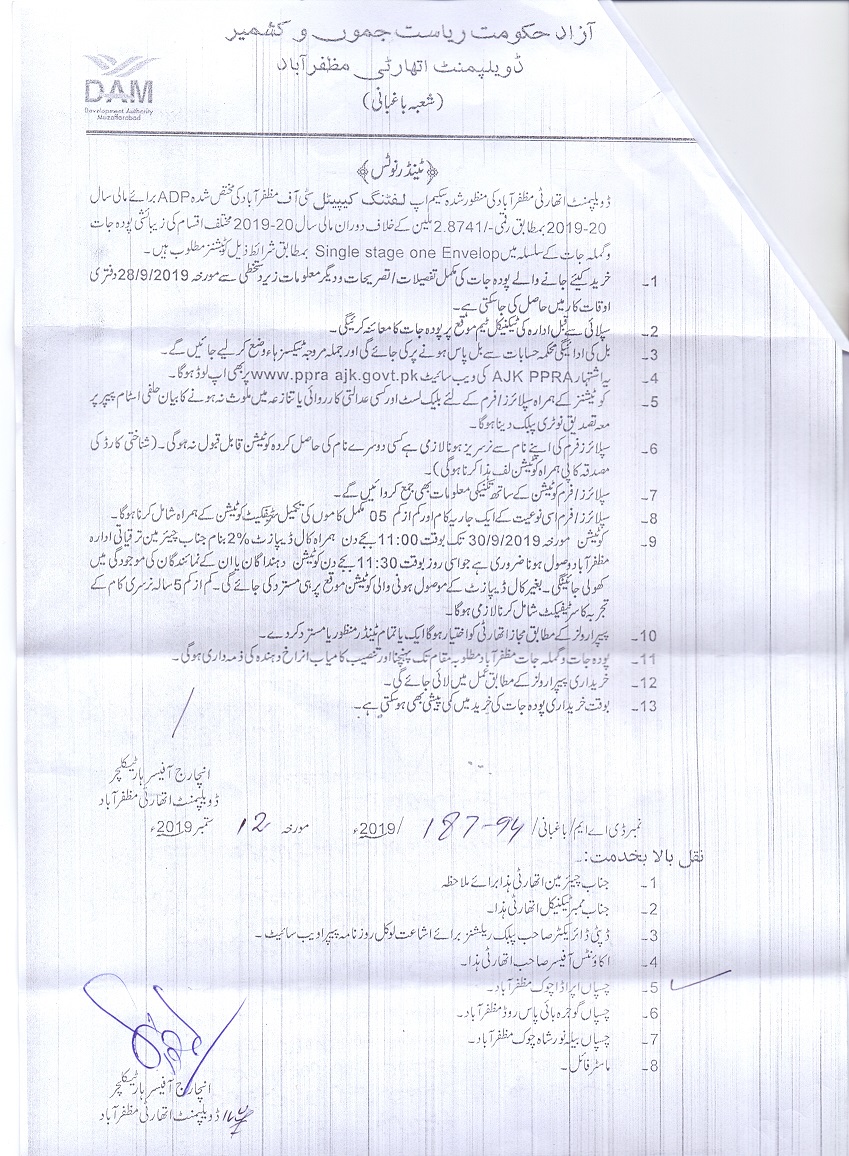 آزاد حکومت ریاست جموں و کشمیر
ڈویلپمنٹ اتھارٹی مظفرآباد
(شعبہ باغبانی)
DAM
Development Authority
Muzaffarabad
﴿ٹینڈر نوٹس﴾
ڈویلپمنٹ اتھارٹی مظفرآباد کی منظور شدہ سکیم اپ لفٹنگ کیپیٹل سٹی آف مظفرآباد کی مختص شدہ ADP برائے مالی سال
2019-20 بمطابق رقمی -/2.8741 ملین کے خلاف دوران مالی سال 20-2019 مختلف اقسام کی زیبائشی پودہ جات
و گملہ جات کے سلسلہ میں Single stage one Envelop بمطابق شرائط ذیل کوٹیشنز مطلوب ہیں۔
1۔ خرید کیئے جانے والے پودہ جات کی مکمل تفصیلات / تصریحات و دیگر معلومات زیر دستخطی سے مورخہ 28/9/2019 دفتری
اوقات کار میں حاصل کی جا سکتی ہے۔
2۔ سپلائی سے قبل ادارہ کی ٹیکنیکل ٹیم موقع پر پودہ جات کا معائنہ کریگی۔
3۔ بل کی ادائیگی محکمہ حسابات سے بل پاس ہونے پر کی جائے گی اور جملہ مروجہ ٹیکسز ہاء وضع کر لیے جائیں گے۔
4۔ یہ اشتہار AJK PPRA کی ویب سائیٹ www.ppra ajk.govt.pk پر بھی اپ لوڈ ہوگا۔
5۔ کوٹیشنز کے ہمراہ سپلائرز / فرم کے لئے بلیک لسٹ اور کسی عدالتی کارروائی یا تنازعہ میں ملوث نہ ہونے کا بیان حلفی اسٹام پیپر پر
معہ تصدیق نوٹری پبلک دینا ہوگا۔
6۔ سپلائرز فرم کی اپنے نام سے نرسریز ہونا لازمی ہے کسی دوسرے نام کی حاصل کردہ کوٹیشن قابل قبول نہ ہوگی۔ (شناختی کارڈ کی
مصدقہ کاپی ہمراہ کوٹیشن لف ہذا کرنا ہوگی)۔
7۔ سپلائرز / فرم کوٹیشن کے ساتھ تکنیکی معلومات بھی جمع کروائیں گے۔
8۔ سپلائرز / فرم اسی نوعیت کے ایک جاریہ کام اور کم از کم 05 مکمل کاموں کی تکمیل سٹیفکیٹ کوٹیشن کے ہمراہ شامل کرنا ہوگا۔
9۔ کوٹیشن مورخہ 30/9/2019 تک بوقت 11:00 بجے دن ہمراہ کال ڈیپازٹ 2% بنام جناب چیئرمین ترقیاتی ادارہ
مظفرآباد وصول ہونا ضروری ہے جو اسی روز بوقت 11:30 بجے دن کوٹیشن دہندا گان یا ان کے نمائندگان کی موجودگی میں
کھولی جائینگی۔ بغیر کال ڈیپازٹ کے موصول ہونی والی کوٹیشن موقع پر ہی مسترد کی جائے گی۔ کم از کم 5 سالہ نرسری کام کے
تجربہ کا سرٹیفکیٹ شامل کرنا لازمی ہوگا۔
10۔ پیپرا رولز کے مطابق مجاز اتھارٹی کو اختیار ہوگا ایک یا تمام ٹینڈر منظور یا مسترد کر دے۔
11۔ پودہ جات و گملہ جات مظفرآباد مطلوبہ مقام تک پہنچنا اور تنصیب کامیاب انراخ دہندہ کی ذمہ داری ہوگی۔
12۔ خریداری پیپرا رولز کے مطابق عمل میں لائی جائے گی۔
13۔ بوقت خریداری پودہ جات کی خرید میں کمی بیشی بھی ہو سکتی ہے۔
انچارج آفیسر ہارٹیکلچر
ڈویلپمنٹ اتھارٹی مظفرآباد
نمبر ڈی اے ایم / باغبانی / 187-94 /2019ء مورخہ 12 ستمبر 2019ء
نقل بالا بخدمت:۔
1۔ جناب چیئرمین اتھارٹی ہذا برائے ملاحظہ
2۔ جناب ممبر ٹیکنیکل اتھارٹی ہذا۔
3۔ ڈپٹی ڈائریکٹر صاحب پبلک ریلشنز برائے اشاعت لوکل روزنامہ پیپرا ویب سائیٹ۔
4۔ اکاؤنٹس آفیسر صاحب اتھارٹی ہذا۔
5۔ چسپاں اپر اڈا چوک مظفرآباد۔
6۔ چسپاں گوجرہ بائی پاس روڈ مظفرآباد۔
7۔ چسپاں بیلہ نور شاہ چوک مظفرآباد۔
8۔ ماسٹر فائل۔
انچارج آفیسر ہارٹیکلچر
ڈویلپمنٹ اتھارٹی مظفرآباد